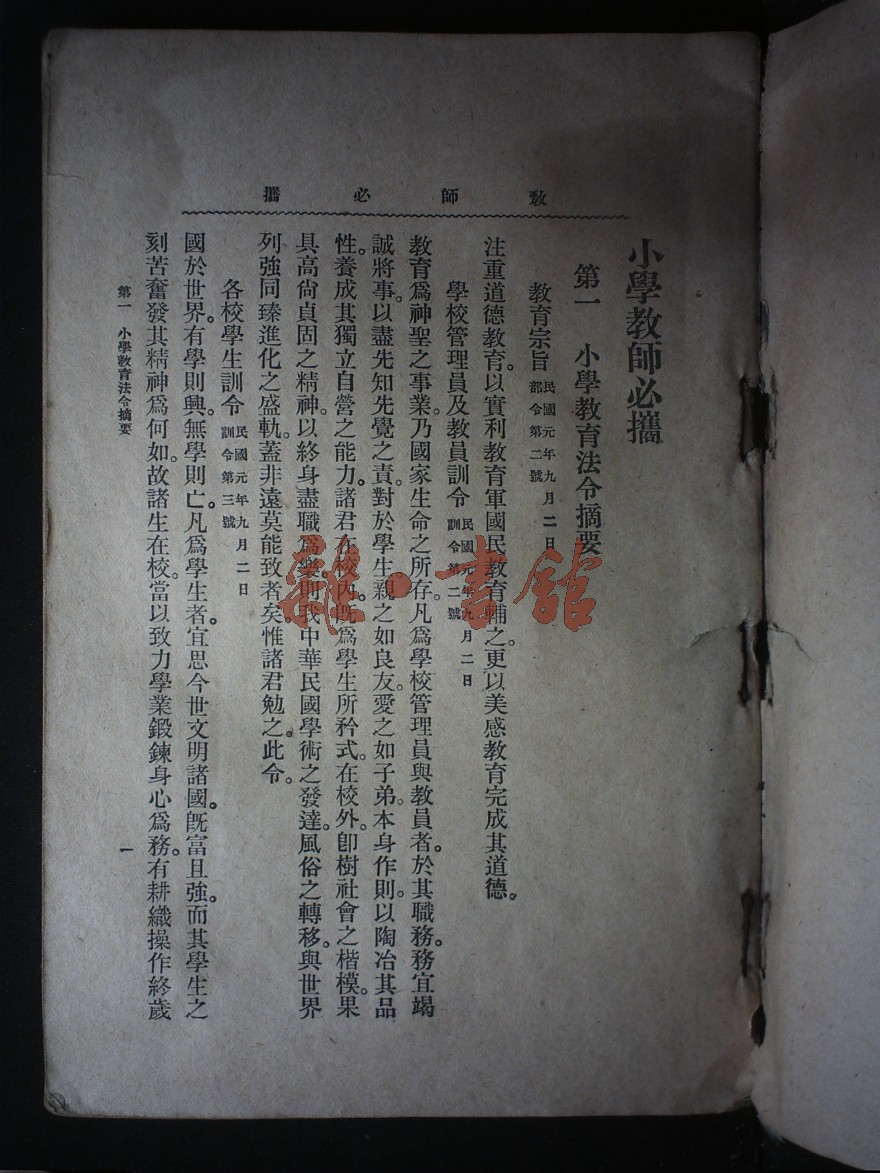 教師必攜
小學教師必攜
第一　小學教育法令摘要
教育宗旨 民國元年九月二日
部令第二號
注重道德教育。以實利教育軍國民教育輔之。更以美感教育完成其道德。
學校管理員及教員訓令 民國元年九月二日
訓令第二號
教育爲神聖之事業。乃國家生命之所存。凡爲學校管理員與教員者。於其職務。務宜竭
誠將事。以盡先知先覺之責。對於學生親之如良友。愛之如子弟。本身作則。以陶冶其品
性。養成其獨立自營之能力。諸君在校內。既爲學生所矜式。在校外。卽樹社會之楷模。果
具高尙貞固之精神。以終身盡職爲樂。則我中華民國學術之發達。風俗之轉移。與世界
列強同臻進化之盛軌。蓋非遠莫能致者矣。惟諸君勉之。此令。
各校學生訓令 民國元年九月二日
訓令第三號
國於世界。有學則興。無學則亡。凡爲學生者。宜思今世文明諸國。旣富且強。而其學生之
刻苦奮發其精神爲何如。故諸生在校。當以致力學業鍛鍊身心爲務。有耕織操作終歲
第一　小學教育法令摘要
一
雜·書館